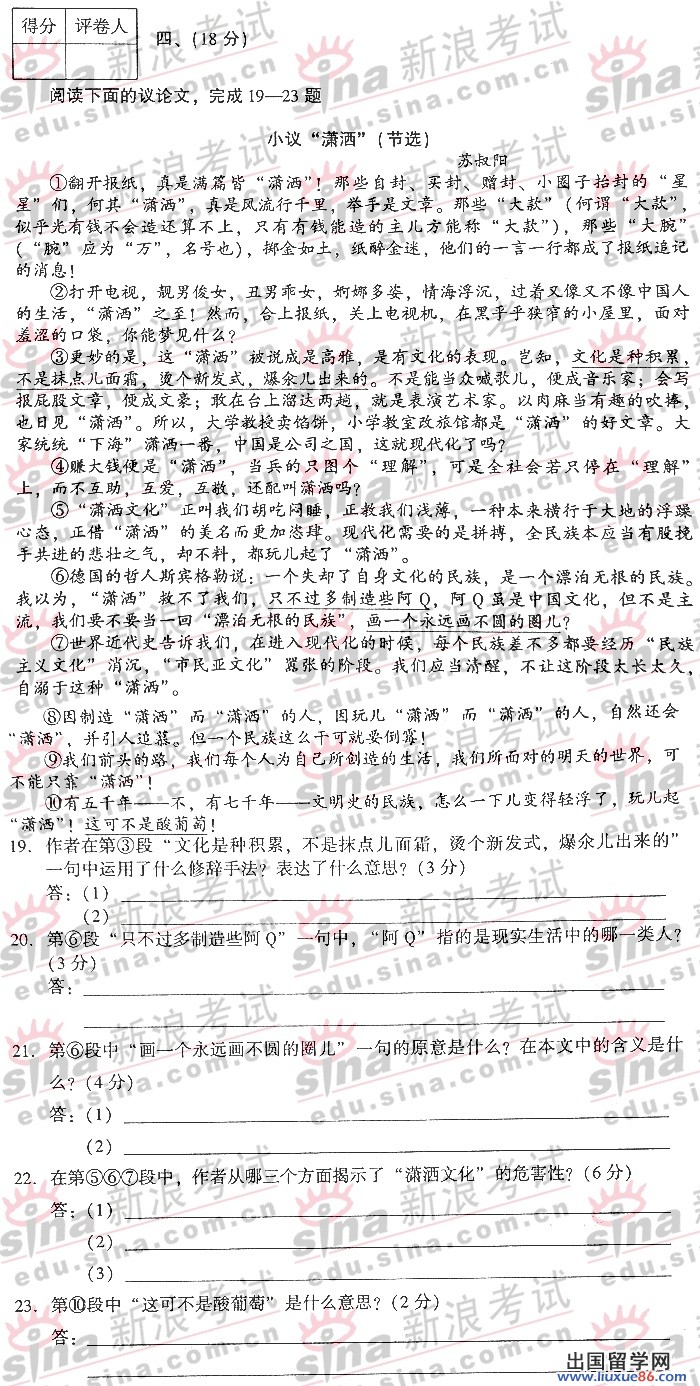 得分 评卷人
四、(18分)
阅读下面的议论文，完成19—23题
小议“潇洒”(节选)
苏叔阳
①翻开报纸，真是满篇皆“潇洒”！那些自封、买封、赠封、小圈子抬封的“星
星”们，何其“潇洒”，真是风流行千里，举手是文章。那些“大款”(何谓“大款”，
似乎光有钱不会造还算不上，只有有钱能造的主儿方能称“大款”)，那些“大腕”
(“腕”应为“万”，名号也)，掷金如土，纸醉金迷，他们的一言一行都成了报纸追记
的消息！
②打开电视，靓男俊女，丑男乖女，婀娜多姿，情海浮沉，过着又像又不像中国人
的生活，“潇洒”之至！然而，合上报纸，关上电视机，在黑乎乎狭窄的小屋里，面对
羞涩的口袋，你能梦见什么？
③更妙的是，这“潇洒”被说成是高雅，是有文化的表现。岂知，文化是种积累，
不是抹点儿面霜，烫个新发式，爆氽儿出来的。不是能当众喊歌儿，便成音乐家；会写
报屁股文章，便成文豪；敢在台上溜达两趟，就是表演艺术家。以肉麻当有趣的吹捧，
也日见“潇洒”。所以，大学教授卖馅饼，小学教室改旅馆都是“潇洒”的好文章。大
家统统“下海”潇洒一番，中国是公司之国，这就现代化了吗？
④赚大钱便是“潇洒”，当兵的只图个“理解”，可是全社会若只停在“理解”
上，而不互助，互爱，互敬，还配叫潇洒吗？
⑤“潇洒文化”正叫我们胡吃闷睡，正教我们浅薄，一种本来横行于大地的浮躁
心态，正借“潇洒”的美名而更加恣肆。现代化需要的是拼搏，全民族本应当有股挽
手共进的悲壮之气，却不料，都玩儿起了“潇洒”。
⑥德国的哲人斯宾格勒说：一个失却了自身文化的民族，是一个漂泊无根的民族。
我以为，“潇洒”救不了我们，只不过多制造些阿Q，阿Q虽是中国文化，但不是主
流，我们要不要当一回“漂泊无根的民族”，画一个永远画不圆的圈儿？
⑦世界近代史告诉我们，在进入现代化的时候，每个民族差不多都要经历“民族
主义文化”消沉，“市民亚文化”嚣张的阶段。我们应当清醒，不让这阶段太长太久，
自溺于这种“潇洒”。
⑧因制造“潇洒”而“潇洒”的人，因玩儿“潇洒”而“潇洒”的人，自然还会
“潇洒”，并引人追慕。但一个民族这么干可就要倒霉！
⑨我们前头的路，我们每个人为自己所创造的生活，我们所面对的明天的世界，可
不能只靠“潇洒”！
⑩有五千年——不，有七千年——文明史的民族，怎么一下儿变得轻浮了，玩儿起
“潇洒”！这可不是酸葡萄！
19. 作者在第③段“文化是种积累，不是抹点儿面霜，烫个新发式，爆氽儿出来的”
一句中运用了什么修辞手法？表达了什么意思？(3分)
答：(1)
(2)
20. 第⑥段“只不过多制造些阿Q”一句中，“阿Q”指的是现实生活中的哪一类人？
(3分)
答：
21. 第⑥段中“画一个永远画不圆的圈儿”一句的原意是什么？在本文中的含义是什
么？(4分)
答：(1)
(2)
22. 在第⑤⑥⑦段中，作者从哪三个方面揭示了“潇洒文化”的危害性？(6分)
答：(1)
(2)
(3)
23. 第⑩段中“这可不是酸葡萄”是什么意思？(2分)
答：
sina 新浪考试
edu.sina.com.cn
出国留学网
www.liuxue86.com